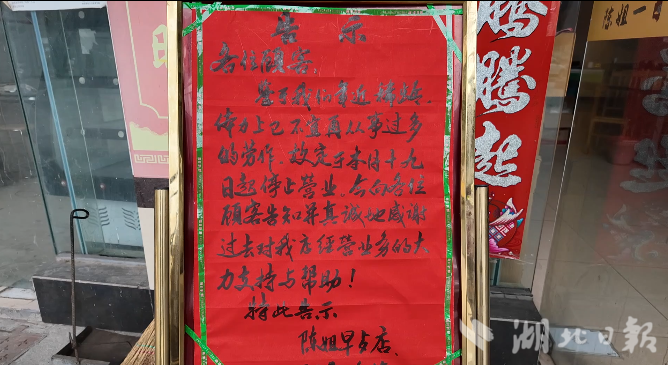 告示
各位顾客:
鉴于我们年近耄耋,
体力上已不宜再从事过多
的劳作、故定于本月十九
日起停止营业。在向各位
顾客告知并真诚地感谢
过去对我店经营业务的大
力支持与帮助!
特此告示
陈姐早点店、
腾
腾
起
陈姐一
湖北日报